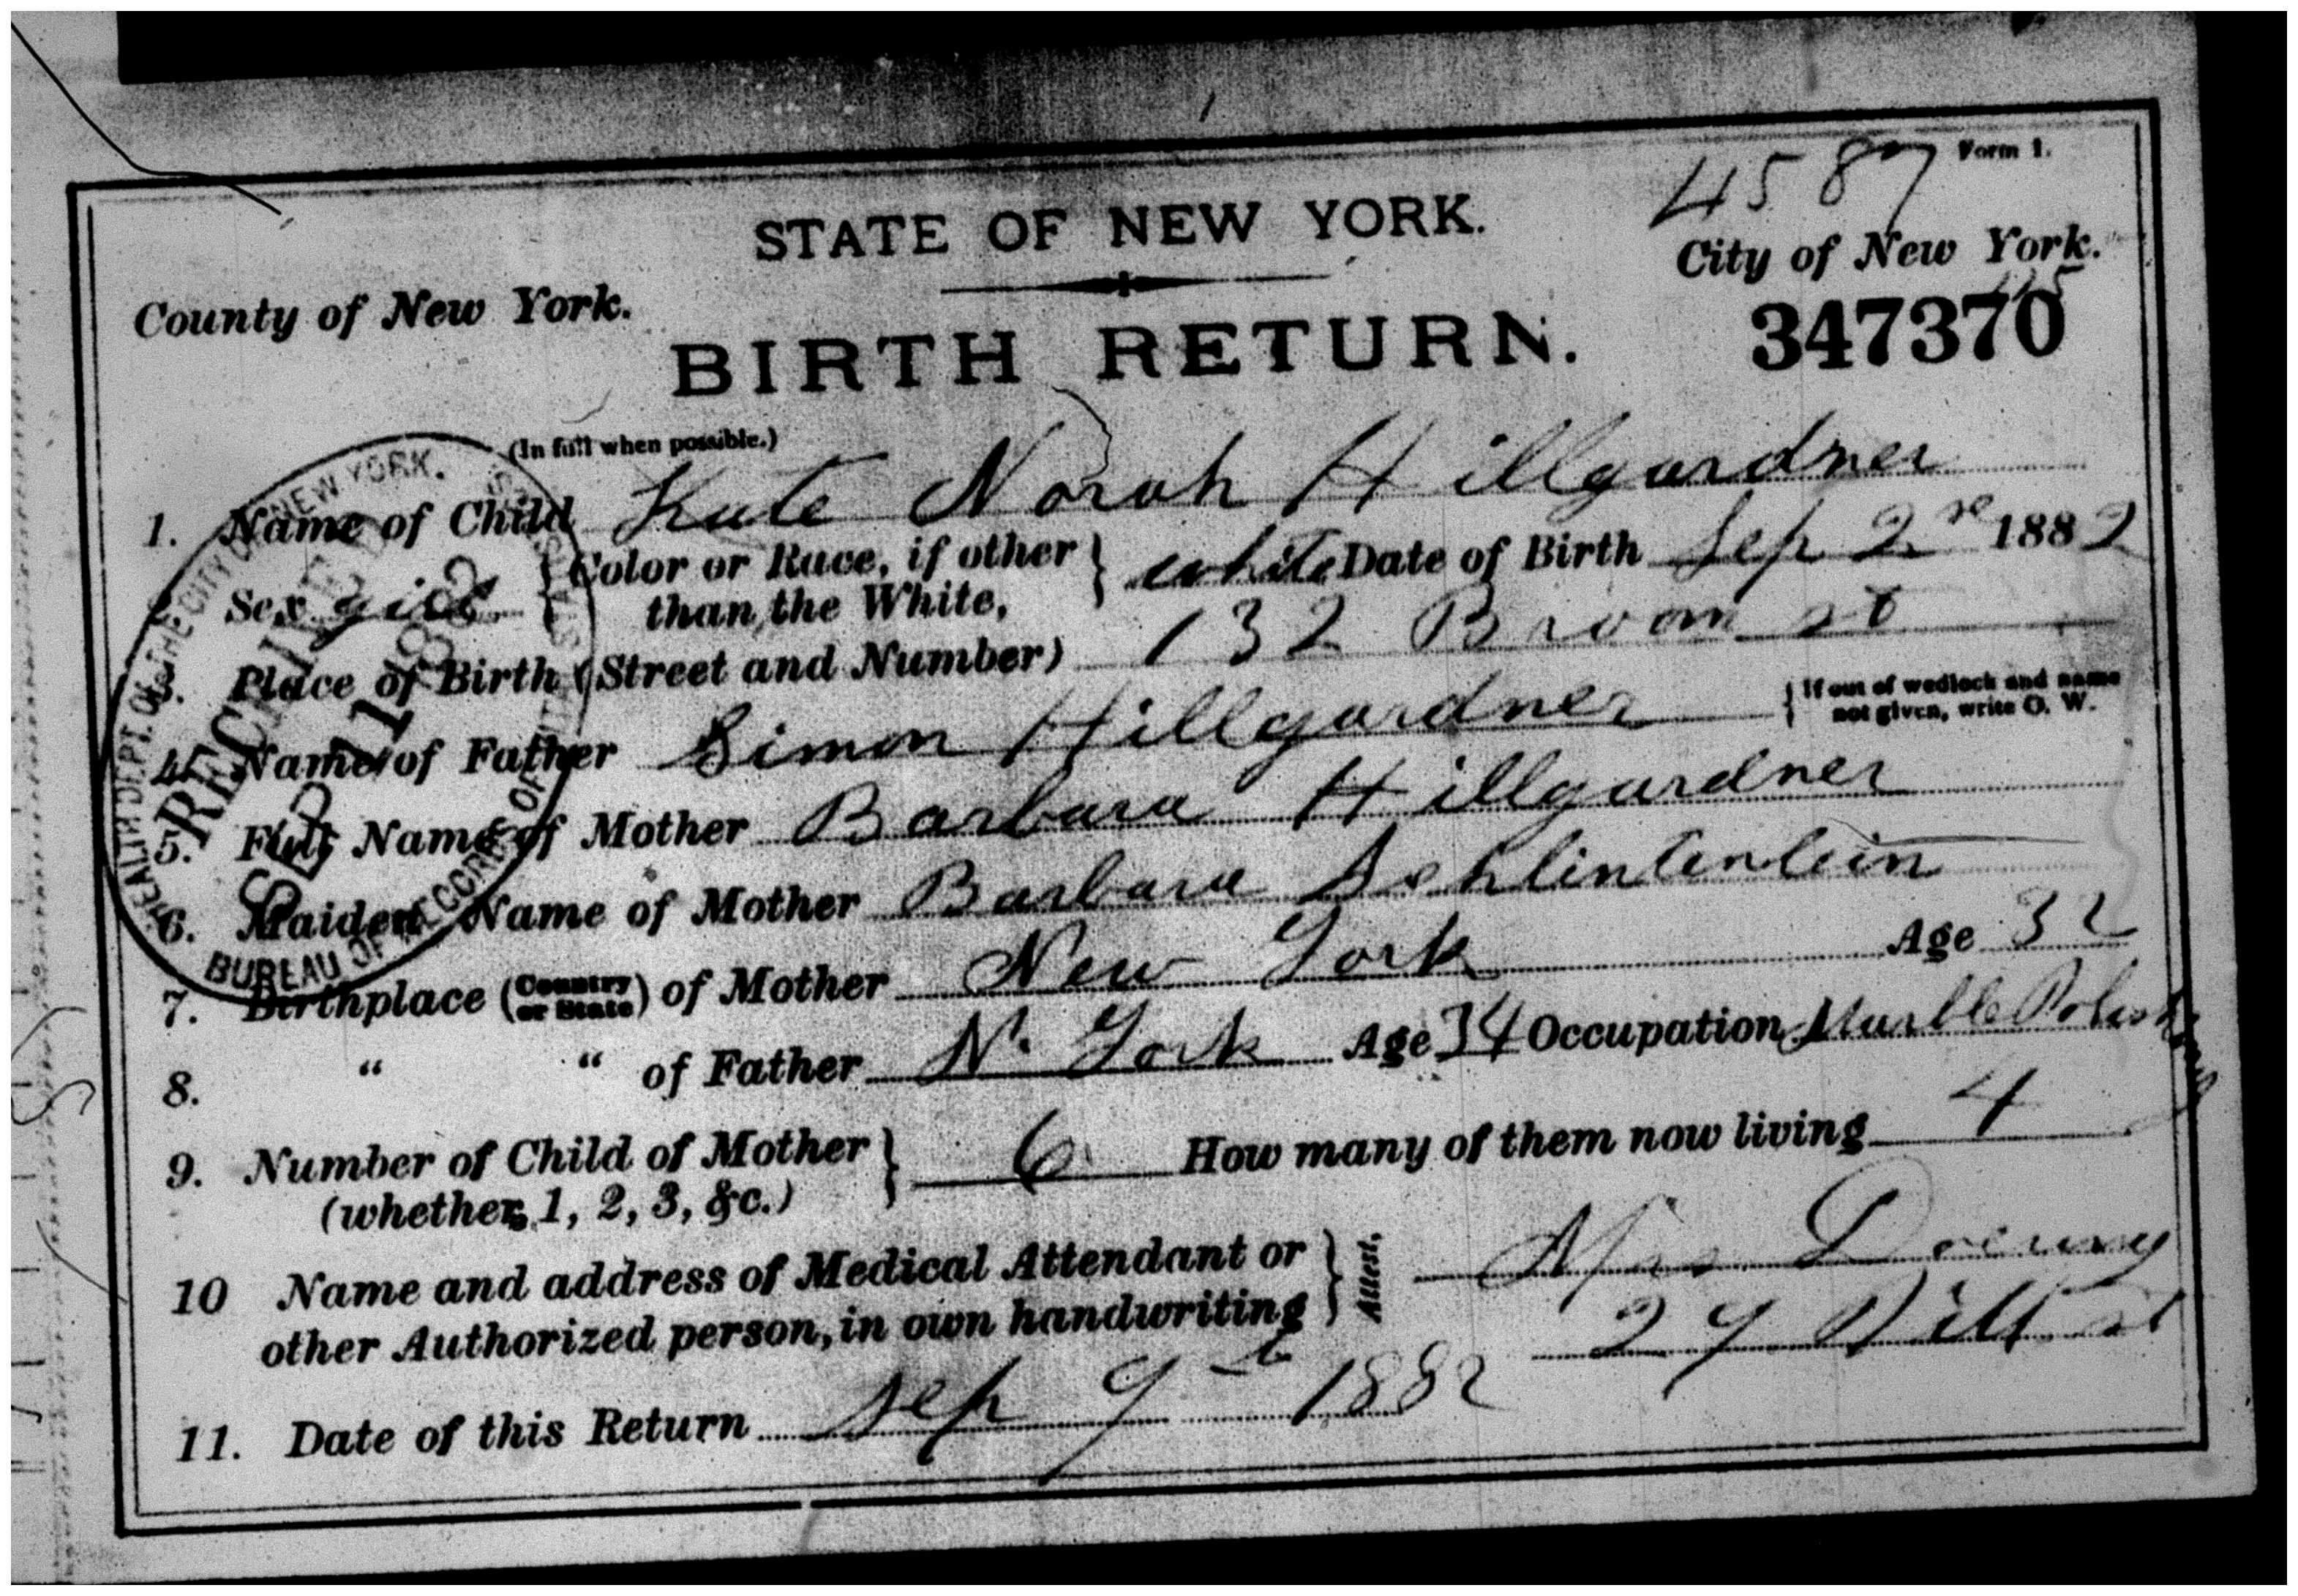 4587 Form 1.
STATE OF NEW YORK.
City of New York.
County of New York.
347370
BIRTH RETURN.
(In full when possible.)
1. Name of Child Kate Norah Hillgardner
2. Sex girl Color or Race, if other than the White, white Date of Birth Sep 2 1882
3. Place of Birth (Street and Number) 132 Broom st
4. Name of Father Simon Hillgardner {If out of wedlock and name not given, write O. W.
5. Full Name of Mother Barbara Hillgardner
6. Maiden Name of Mother Barbara Schlintenlein
7. Birthplace (Country or State) of Mother New York Age 32
8. " " of Father N. York Age 34 Occupation Marble Polishing
9. Number of Child of Mother } 6 How many of them now living 4
(whether 1, 2, 3, &c.)
10 Name and address of Medical Attendant or } Attest, Mrs
other Authorized person, in own handwriting 29 Pitt st
11. Date of this Return Sep 9 1882
HEALTH DEPT. OF THE CITY OF NEW YORK.
RECEIVED
BUREAU OF RECORDS OF VITAL STATISTICS